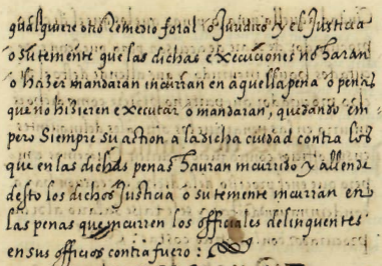 qualquiere otro remedio foral o Juridico y el Justicia
o su temente que las dichas execuciones no haran
o hazer mandaran incurran en aquella pena o penas
que no hizieren executar o mandaran, quedando em-
pero siempre su action a la dicha ciudad contra los
que en las dichas penas hauran incurrido y allende
desto los dichos Justicia o su temente incurran en
las penas que incurren los officiales delinquentes
en sus officios contra fuero :